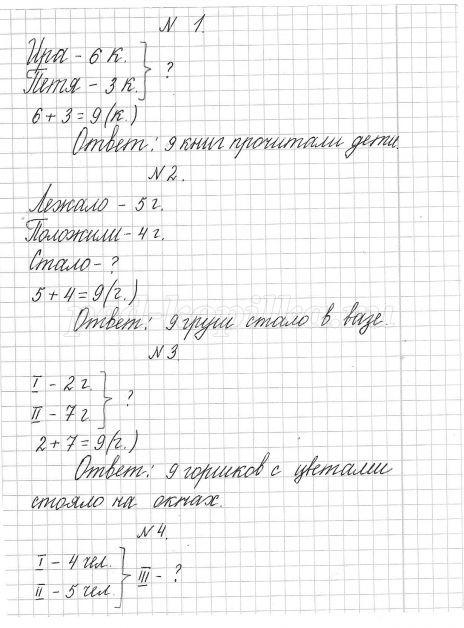 N 1.
Ира - 6 к. } ?
Петя - 3 к.
6 + 3 = 9 (к.)
Ответ: 9 книг прочитали дети.
N 2.
Лежало - 5 г.
Положили - 4 г.
Стало - ?
5 + 4 = 9 (г.)
Ответ: 9 груш стало в вазе.
N 3.
I - 2 г. } ?
II - 7 г.
2 + 7 = 9 (г.)
Ответ: 9 горшков с цветами
стояло на окнах.
N 4.
I - 4 чел. } III - ?
II - 5 чел